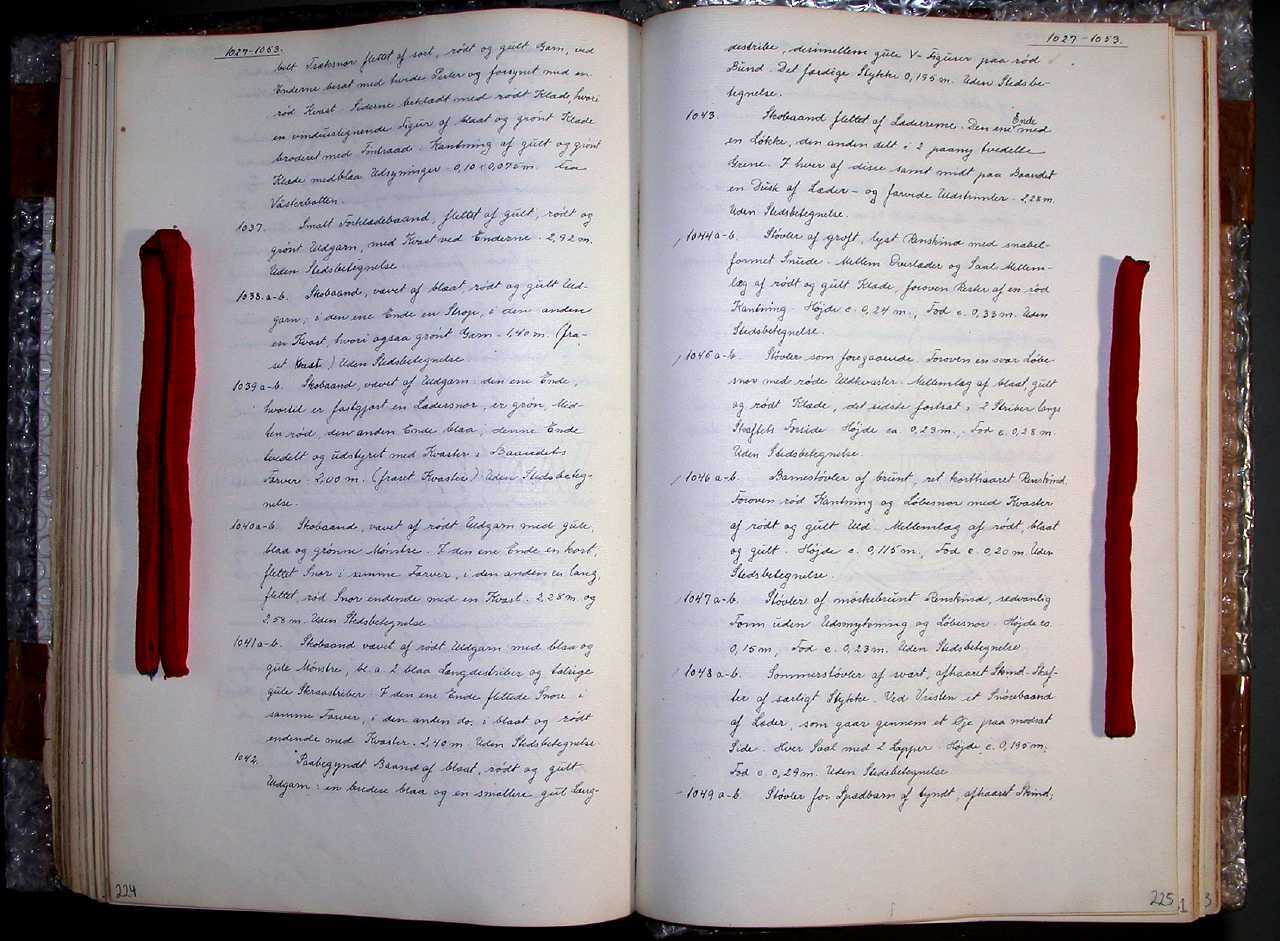 1027-1053.
belt Træksnor flettet af sort, rødt og gult Garn, ved
Enderne besat med hvide Perler og forsynet med en
rød Kvast. Siderne beklædt med rødt Klæde, hvori
en vinduelignende Figur af blaat og grønt Klæde
broderet med Tintraad. Kantning af gult og grønt
Klæde med blaa Udsyninger. 0,10 × 0,075 m. Fra
Västerbotten.
1037. Smalt Forklædebaand, flettet af gult, rødt og
grønt Uldgarn, med Kvast ved Enderne. 2,92 m.
Uden Stedsbetegnelse
1038. a-b. Skobaand, vævet af blaat, rødt og gult Uld-
garn; i den ene Ende en Strop, i den anden
en Kvast, hvori ogsaa grønt Garn. 1,40 m. (fra-
set Kvast.) Uden Stedsbetegnelse
1039 a-b. Skobaand, vævet af Uldgarn: den ene Ende,
hvortil er fastgjort en Lædersnor, er grøn, Mid-
ten rød, den anden Ende blaa; denne Ende
tvedelt og udstyret med Kvaster i Baandets
Farver. 2,00 m. (fraset Kvaster) Uden Stedsbeteg-
nelse.
1040 a-b. Skobaand, vævet af rødt Uldgarn med gule,
blaa og grønne Mønstre. I den ene Ende en kort,
flettet Snor i samme Farver, i den anden en lang,
flettet, rød Snor endende med en Kvast. 2,28 m. og
2,58 m. Uden Stedsbetegnelse
1041 a-b. Skobaand vævet af rødt Uldgarn med blaa og
gule Mønstre, bl. a. 2 blaa Langdestriber og talrige
gule Skraastriber. I den ene Ende flettede Snore i
samme Farver, i den anden do. i blaat og rødt
endende med Kvaster. 2,40 m. Uden Stedsbetegnelse
1042. Paabegyndt Baand af blaat, rødt og gult
Uldgarn: en bredere blaa og en smallere gul Læng-
224
1027-1053.
destribe, desimellem gule V-Figurer paa rød
Bund. Det færdige Stykke 0,195 m. Uden Stedsbe-
tegnelse.
1043. Skobaand flettet af Læderreme. Den ene Ende med
en Løkke, den anden delt i 2 paany tvedelte
Grene. I hver af disse samt midt paa Baandet
en Dusk af Læder- og farvede Uldstrimler. 2,28 m.
Uden Stedsbetegnelse.
1044 a-b. Støvler af groft, lyst Renskind med snabel-
formet Snude. Mellem Overlæder og Saal Mellem-
læg af rødt og gult Klæde, foroven Rester af en rød
Kantning. Højde c. 0,24 m., Fod c. 0,33 m. Uden
Stedsbetegnelse.
1045 a-b. Støvler som foregaaende. Foroven en svær Løbe-
snor med røde Uldkvaster. Mellemlæg af blaat, gult
og rødt Klæde, det sidste fortsat i 2 Striber langs
Skaftets Forside. Højde ca. 0,23 m., Fod c. 0,28 m.
Uden Stedsbetegnelse.
1046 a-b. Barnestøvler af brunt, ret korthaaret Renskind.
Foroven rød Kantning og Løbesnor med Kvaster
af rødt og gult Uld. Mellemlæg af rødt, blaat
og gult. Højde c. 0,115 m., Fod c. 0,20 m. Uden
Stedsbetegnelse.
1047 a-b. Støvler af mørkebrunt Renskind, sedvanlig
Form uden Udsmykning og Løbesnor. Højde ca.
0,15 m., Fod c. 0,23 m. Uden Stedsbetegnelse
1048 a-b. Sommerstøvler af svært, afhaaret Skind. Skaf-
ter af særligt Stykke. Ved Vristen et Snørebaand
af Læder, som gaar gennem et Øje paa modsat
Side. Hver Saal med 2 Lapper. Højde c. 0,195 m.,
Fod c. 0,29 m. Uden Stedsbetegnelse
1049 a-b. Støvler for Spædbarn af tyndt, afhaaret Skind;
225
1
3